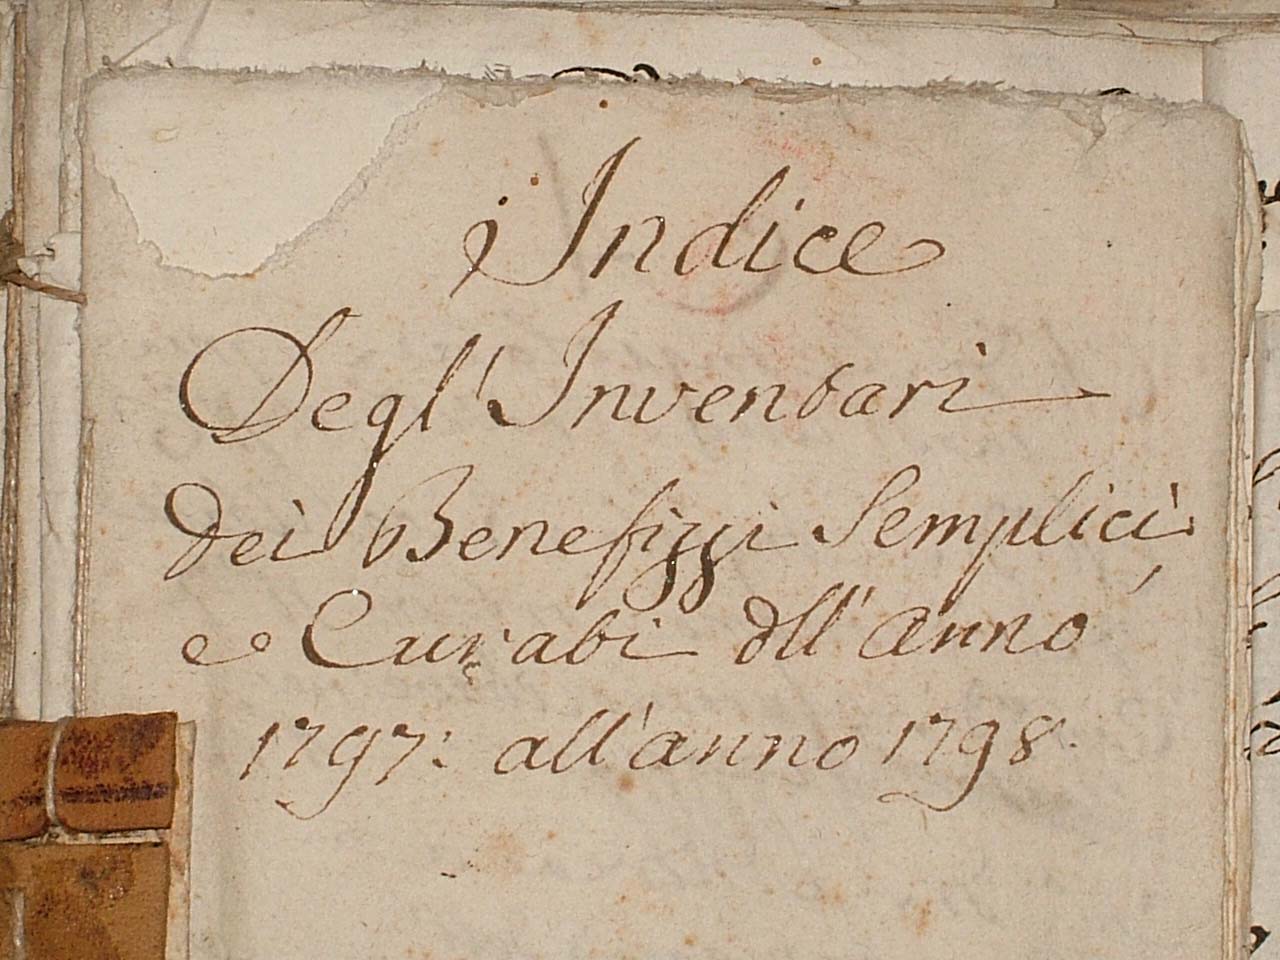 Indice
Degl' Inventari
dei Benefizzi Semplici,
e Curati dll' anno
1797: all' anno 1798.